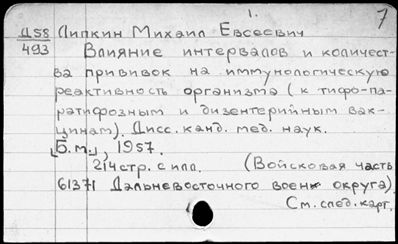 1. 7
Д58 Липкин Михаил Евсеевич
493 Влияние интервалов и количест-
ва прививок на иммунологическую
реактивность организма (к тифо-па-
ратифозным и дизентерийным вак-
цинам). Дисс. канд. мед. наук.
[Б.м.], 1957.
214 стр. с илл. (Войсковая часть
61371 Дальневосточного воен округа)
См. след. карт.